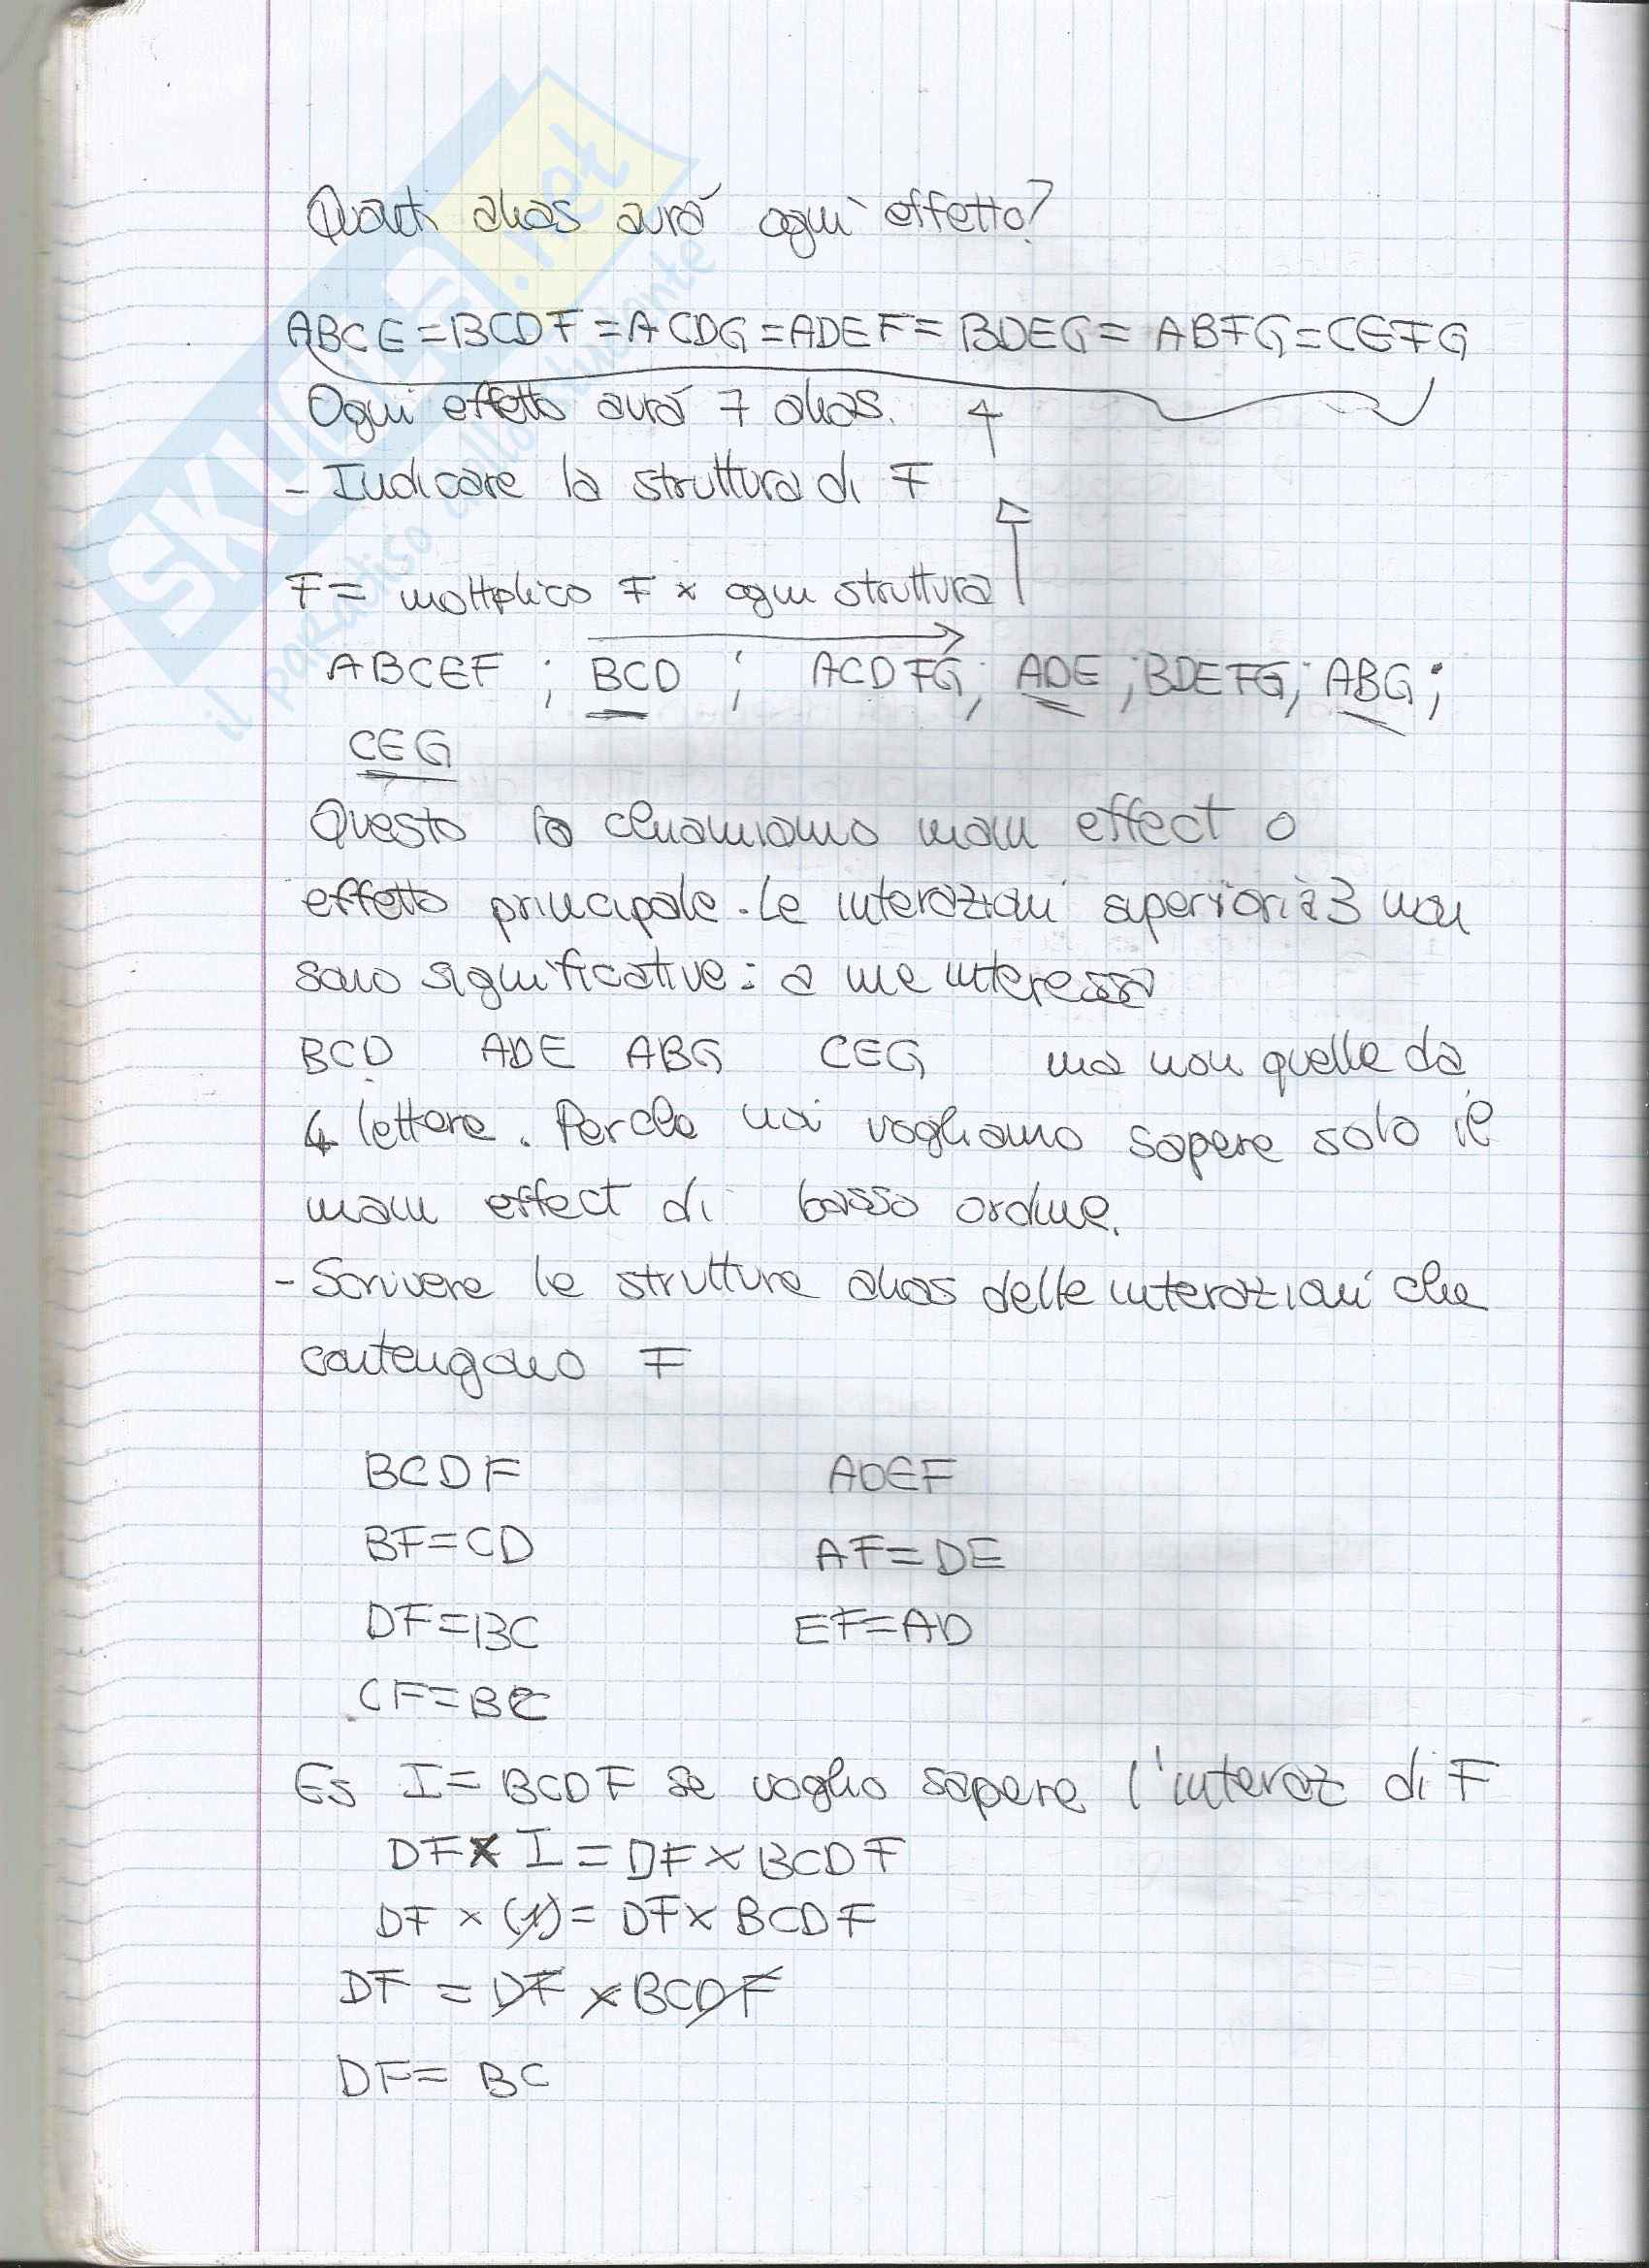 Quanti alias avrá ogni effetto?
ABCE=BCDF=ACDG=ADEF=BDEG=ABFG=CEFG
Ogni effetto avrá 7 alias.
- Indicare la struttura di F
F= moltiplico F x ogni struttura
ABCEF ; BCD ; ACDFG; ADE ; BDEFG; ABG;
CEG
Questo lo chiamiamo main effect o
effetto principale. Le interazioni superiori a 3 non
sono significative: a me interessa
BCD ADE ABG CEG ma non quelle da
4 lettere. Perche noi vogliamo sapere solo il
main effect di basso ordine.
- Scrivere le strutture alias delle interazioni che
contengono F
BCDF ADEF
BF=CD AF=DE
DF=BC EF=AD
CF=
Es I=BCDF se voglio sapere l'interaz di F
DF x I = DF x BCDF
DF x (1) = DF x BCDF
DF = DF x BCDF
DF = BC
SKUOLA.net
il paradiso dello studente